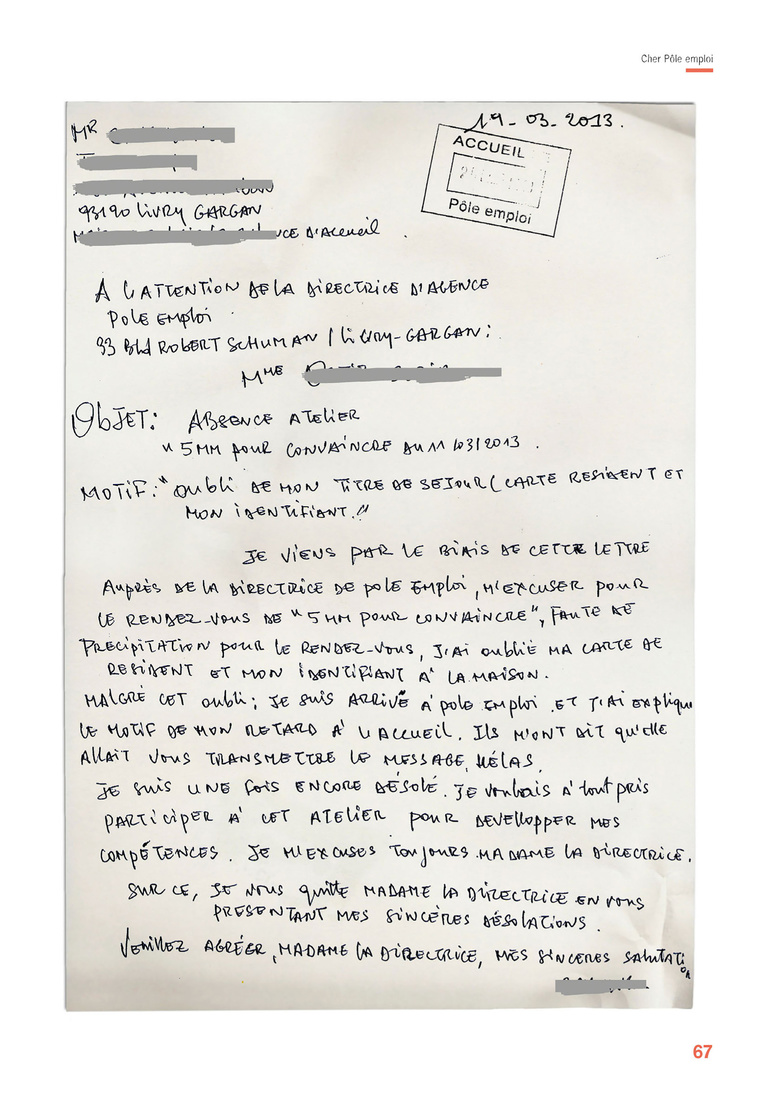 Cher Pôle emploi
19-03-2013.
MR
ACCUEIL
Pôle emploi
93190 LIVRY GARGAN
D'Accueil.
A L'ATTENTION DE LA DIRECTRICE D'AGENCE
POLE EMPLOI
33 Bld ROBERT SCHUMAN / LIVRY-GARGAN:
MME
OBJET: ABSENCE ATELIER
" 5MM POUR CONVAINCRE AU 11/03/2013.
MOTIF: "OUBLI DE MON TITRE DE SEJOUR (CARTE RESIDENT ET
MON IDENTIFIANT."
JE VIENS PAR LE BIAIS DE CETTE LETTRE
AUPRÈS DE LA DIRECTRICE DE POLE EMPLOI, M'EXCUSER POUR
LE RENDEZ-VOUS DE "5MM POUR CONVAINCRE", FAUTE DE
PRECIPITATION POUR LE RENDEZ-VOUS, J'AI OUBLIÉ MA CARTE DE
RESIDENT ET MON IDENTIFIANT A' LA MAISON.
MALGRÉ CET OUBLI; JE SUIS ARRIVÉ A' POLE EMPLOI ET J'AI EXPLIQUE
LE MOTIF DE MON RETARD A' L'ACCUEIL. ILS M'ONT DIT QU'ELLE
ALLAIT VOUS TRANSMETTRE LE MESSAGE, HÉLAS.
JE SUIS UNE FOIS ENCORE DÉSOLÉ. JE VOULAIS A' TOUT PRIS
PARTICIPER A' CET ATELIER POUR DEVELOPPER MES
COMPÉTENCES. JE M'EXCUSES TOUJOURS MADAME LA DIRECTRICE.
SUR CE, JE VOUS QUITTE MADAME LA DIRECTRICE EN VOUS
PRESENTANT MES SINCÈRES DÉSOLATIONS.
VEUILLEZ AGRÉER, MADAME LA DIRECTRICE, MES SINCERES SALUTATION
67